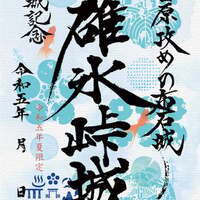 原攻めの
碓氷峠城
令和五年夏限定
城記念
令和五年 月 日